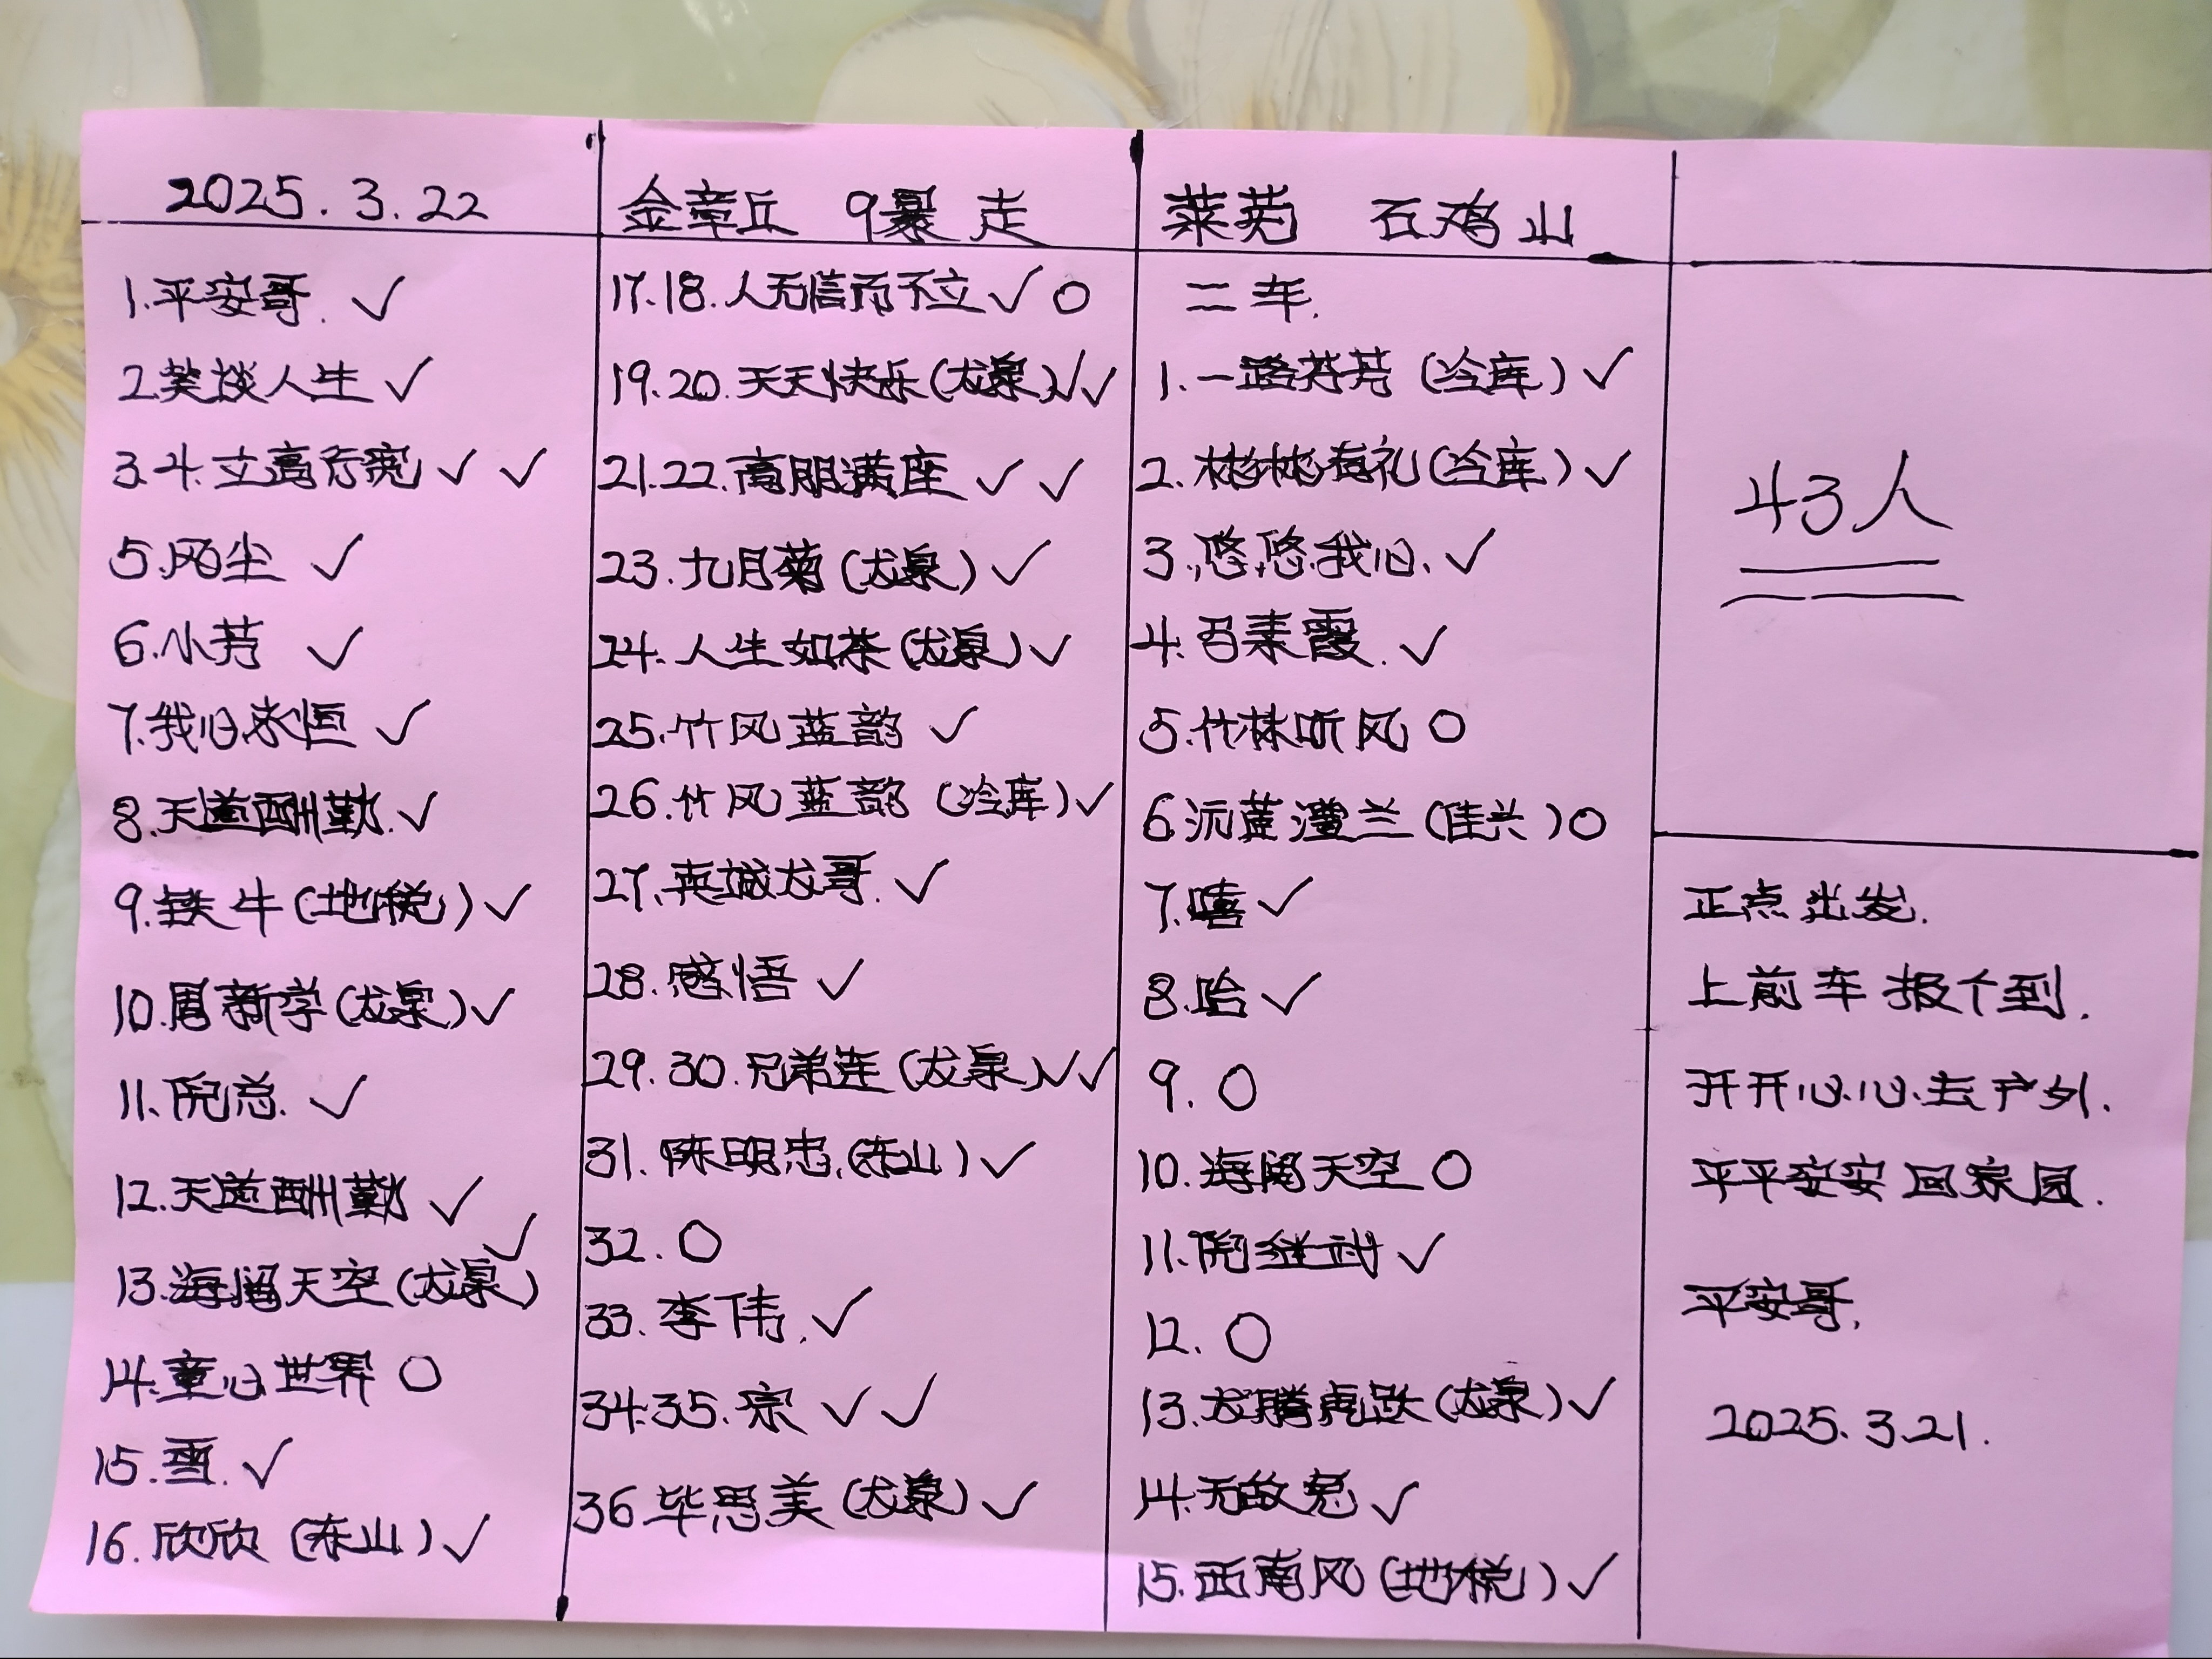 2025.3.22
1.平安哥. ✓
2.笑谈人生 ✓
3.4.立高行宽 ✓ ✓
5.风尘 ✓
6.小芳 ✓
7.我心永恒 ✓
8.天道酬勤. ✓
9.铁牛(地税) ✓
10.周新学(龙泉) ✓
11.倪总. ✓
12.天道酬勤 ✓
13.海阔天空(龙泉) ✓
14.童心世界 ○
15.雪. ✓
16.欣欣(东山) ✓
金章丘 9暴走
17.18.人无信而不立 ✓ ○
19.20.天天快乐(龙泉) ✓✓
21.22.高朋满座 ✓ ✓
23.九月菊(龙泉) ✓
24.人生如茶(龙泉) ✓
25.竹风蓝韵 ✓
26.竹风蓝韵(冷库) ✓
27.英城龙哥. ✓
28.感悟 ✓
29.30.兄弟连(龙泉) ✓✓
31.陈明忠.(东山) ✓
32.○
33.李伟. ✓
34.35.宗 ✓ ✓
36.毕思美(龙泉) ✓
莱芜 石鸡山
二车.
1.一路芬芳(冷库) ✓
2.彬彬有礼(冷库) ✓
3.悠悠我心. ✓
4.召素霞. ✓
5.竹林听风 ○
6.沅芷澧兰(佳兴) ○
7.嘻 ✓
8.哈 ✓
9.○
10.海阔天空 ○
11.倪继武 ✓
12.○
13.龙腾虎跃(龙泉) ✓
14.无敌兔 ✓
15.西南风(地税) ✓
43人
正点出发.
上前车报个到.
开开心心去户外.
平平安安回家园.
平安哥.
2025.3.21.